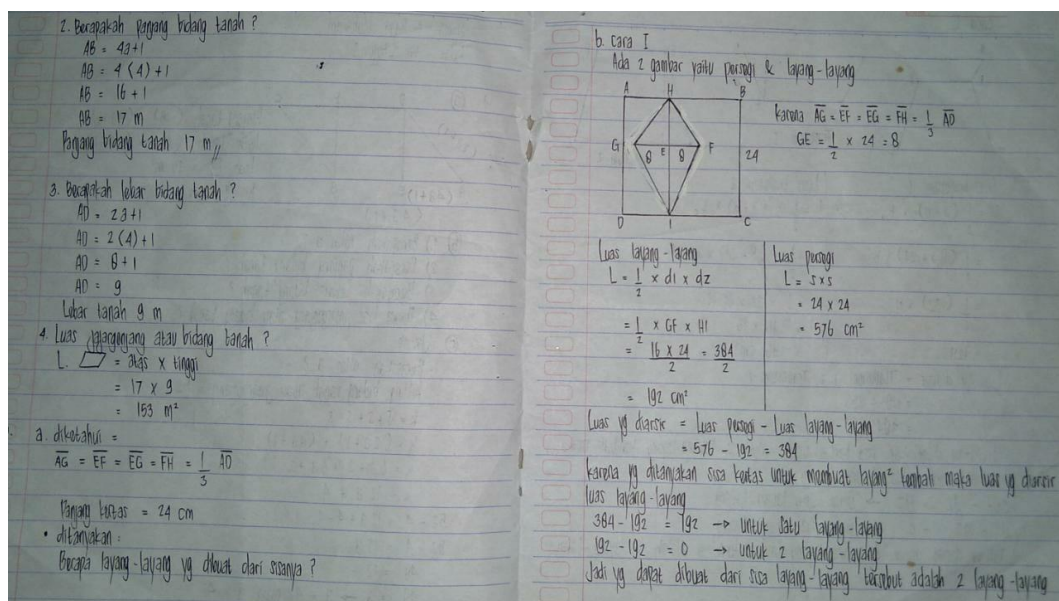 2. Berapakah panjang bidang tanah ?
AB = 4a+1
AB = 4 (4) + 1
AB = 16 + 1
AB = 17 m
Panjang bidang tanah 17 m //
3. Berapakah lebar bidang tanah ?
AD = 2a+1
AD = 2 (4) + 1
AD = 8 + 1
AD = 9
Lebar tanah 9 m
4. Luas jajargenjang atau bidang tanah ?
L. ▱ = alas x tinggi
= 17 x 9
= 153 m²
a. diketahui =
AG = EF = EG = FH = 1/3 AD
Panjang kertas = 24 cm
• ditanyakan :
Berapa layang-layang yg dibuat dari sisanya ?
b. Cara I
Ada 2 gambar yaitu persegi & layang-layang
A H B
G 8 E 8 F 24
D I C
karena AG = EF = EG = FH = 1/3 AD
GE = 1/2 x 24 = 8
Luas layang-layang
L = 1/2 x d1 x d2
= 1/2 x GF x HI
= 16 x 24 / 2 = 384 / 2
= 192 cm²
Luas persegi
L = s x s
= 24 x 24
= 576 cm²
Luas yg diarsir = Luas persegi - Luas layang-layang
= 576 - 192 = 384
karena yg ditanyakan sisa kertas untuk membuat layang² kembali maka luas yg diarsir
luas layang-layang
384 - 192 = 192 → untuk satu layang-layang
192 - 192 = 0 → untuk 2 layang-layang
Jadi yg dapat dibuat dari sisa layang-layang tersebut adalah 2 layang-layang